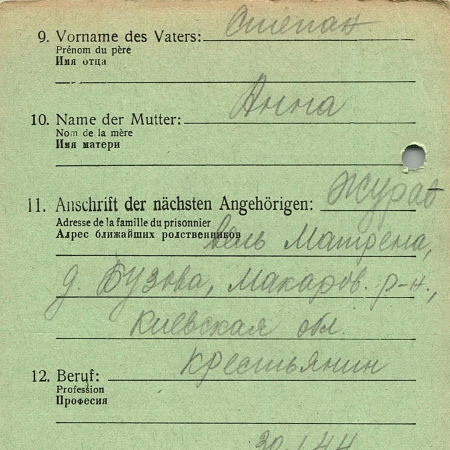 9. Vorname des Vaters: Степан
Prénom du père
Имя отца
10. Name der Mutter: Анна
Nom de la mère
Имя матери
11. Anschrift der nächsten Angehörigen: Журав
Adresse de la famille du prisonnier
Адрес ближайших родственников вель Матрена,
д. Бузова, Макаров. р-н.,
Киевская обл.
12. Beruf: крестьянин
Profession
Професия
30.1.44